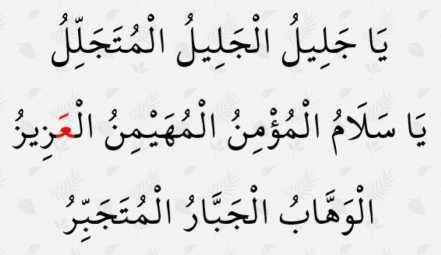 يَا جَلِيلُ الْجَلِيلُ الْمُتَجَلِّلُ
يَا سَلَامُ الْمُؤْمِنُ الْمُهَيْمِنُ الْعَزِيزُ
الْوَهَّابُ الْجَبَّارُ الْمُتَجَبِّرُ